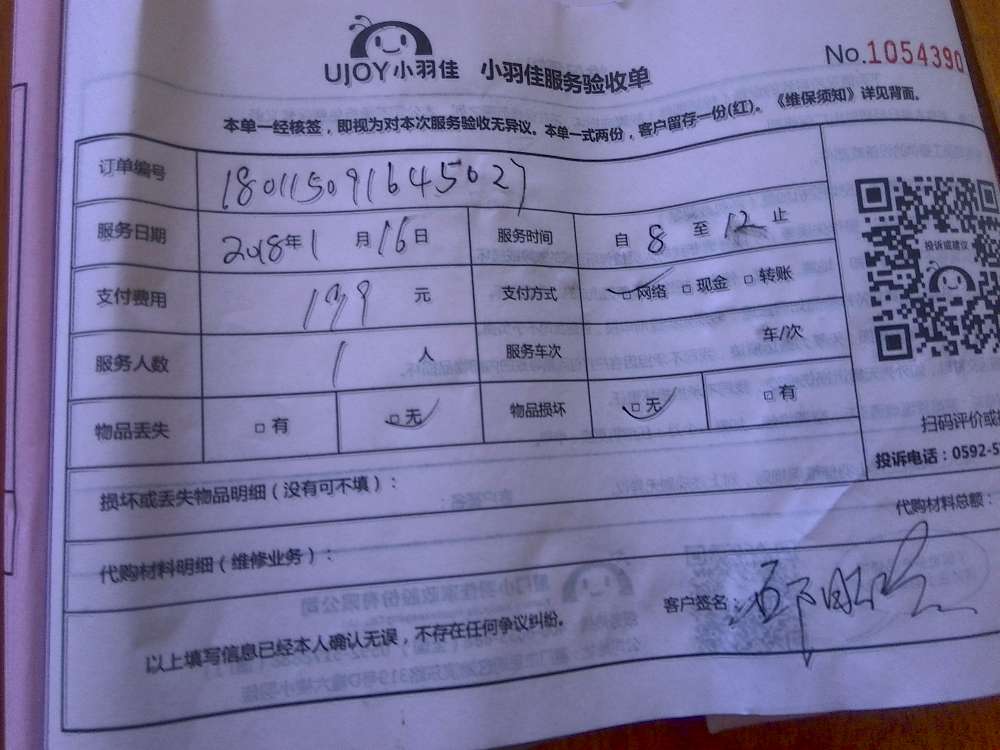 UJOY小羽佳 小羽佳服务验收单
No.1054390
本单一经核签，即视为对本次服务验收无异议。本单一式两份，客户留存一份(红)。《维保须知》详见背面。
订单编号 180115091645027
服务日期 2018年1月16日 服务时间 自8至12止
支付费用 199元 支付方式 □网络 □现金 □转账
服务人数 1人 服务车次 车/次
物品丢失 □有 □无 物品损坏 □无 □有
投诉或建议
扫码评价或
投诉电话：0592-5
损坏或丢失物品明细（没有可不填）：
代购材料明细（维修业务）：
代购材料总额：
客户签名：
以上填写信息已经本人确认无误，不存在任何争议纠纷。